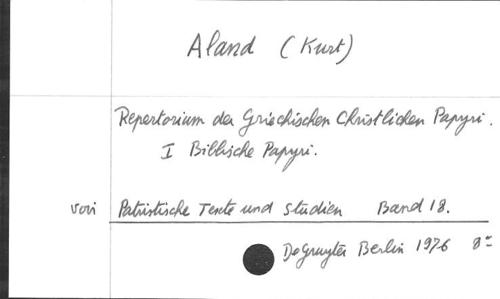 Aland (Kurt)
Repertorium der Griechischen Christlichen Papyri.
I Biblische Papyri.
voir Patristische Texte und Studien Band 18.
De Gruyter Berlin 1976 8°